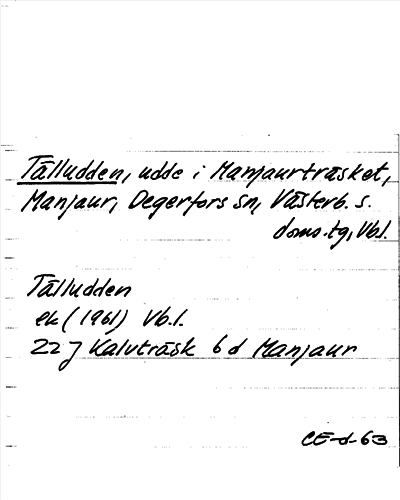 Tålludden, udde i Manjaurträsket,
Manjaur, Degerfors sn, Västerb. s.
doms.tg, Vbl.
Tålludden
ek (1961) Vb.l.
22 J Kalvträsk 6 d Manjaur
CE-d-63